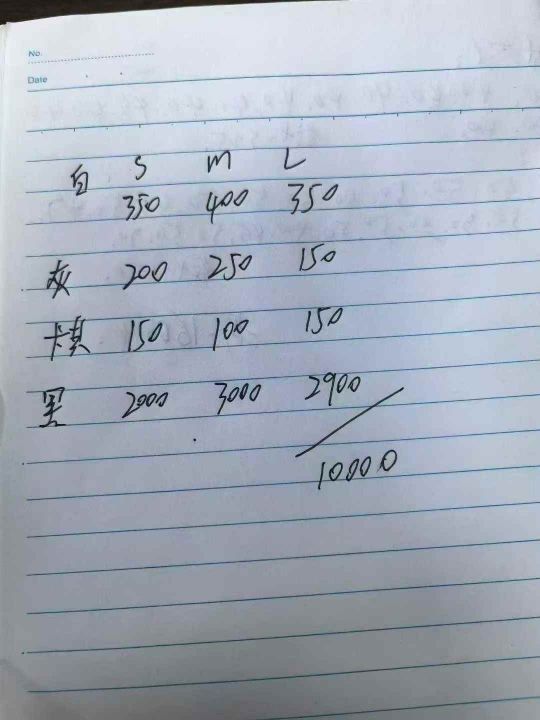 No.
Date
白 S M L
350 400 350
灰 200 250 150
卡其 150 100 150
黑 2000 3000 2900
10000